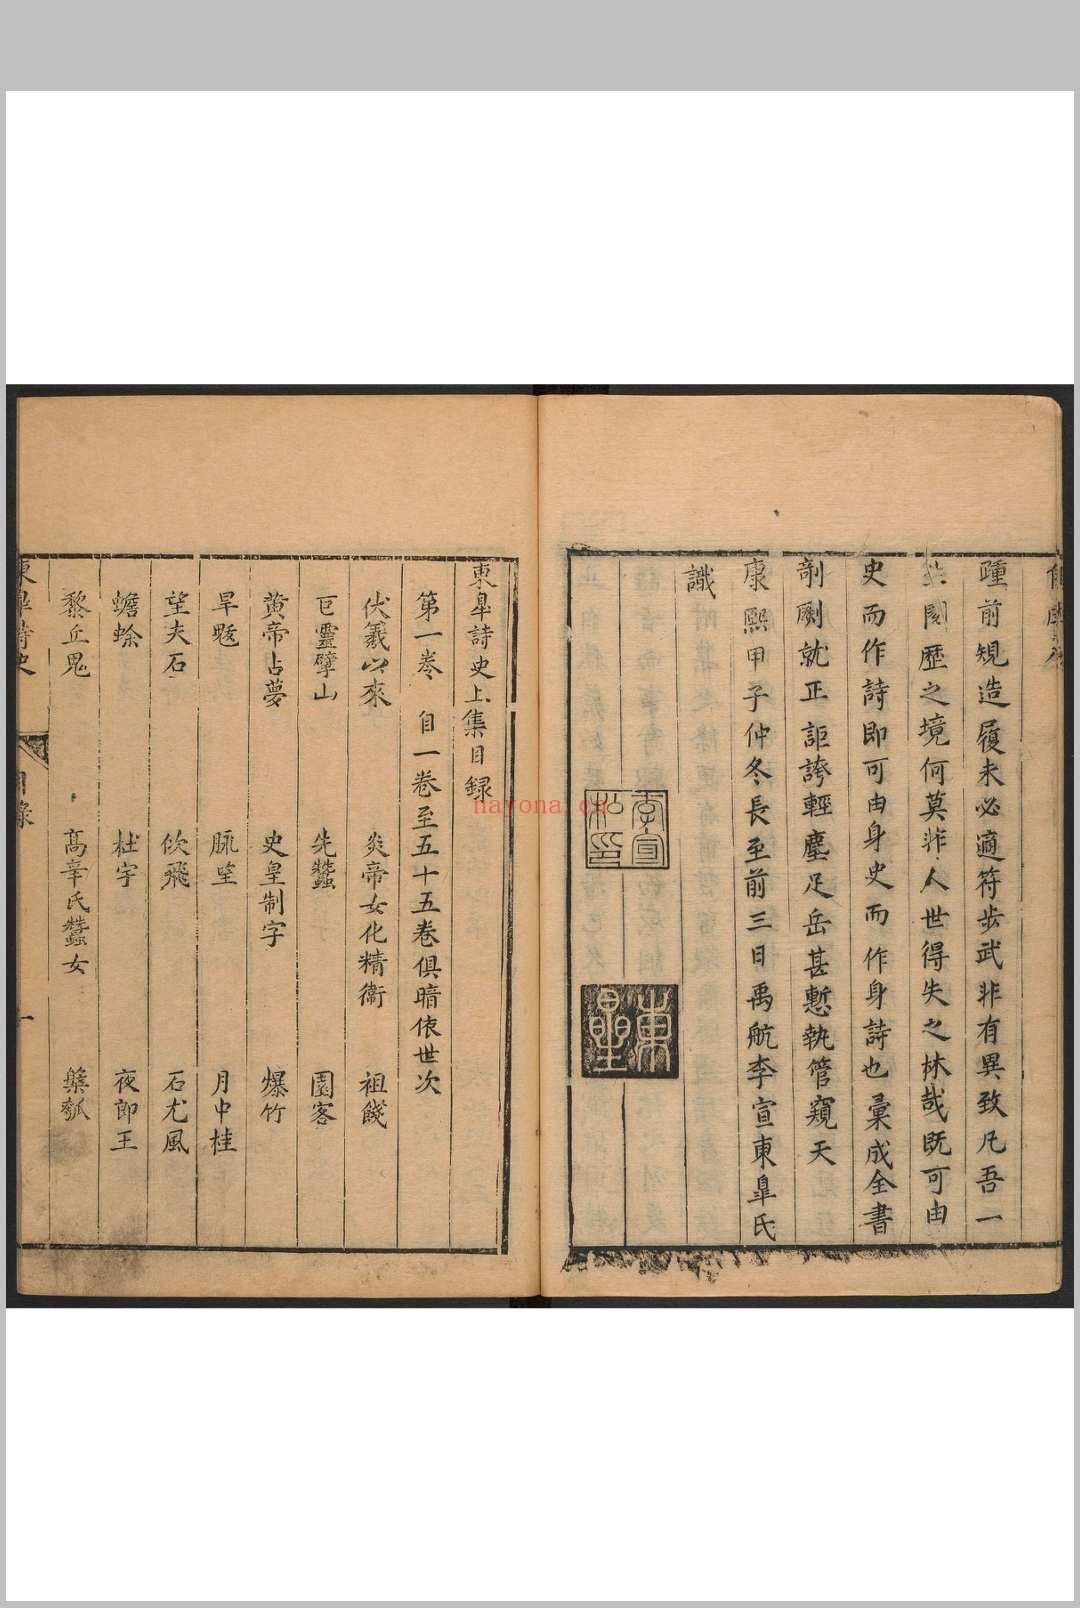 踵前規造履未必適符步武非有異致凡吾一
閱歷之境何莫非人世得失之林哉既可由
史而作詩即可由身史而作身詩也彙成全書
剞劂就正詎誇輕塵足岳甚慙執管窺天
康熙甲子仲冬長至前三日禹航李宣東皐氏
識
李宣私印
東皐
東皐詩史上集目録
第一卷 自一卷至五十五卷俱暗依世次
伏羲以來 炎帝女化精衞 祖餞
巨靈擘山 先蠶 園客
黄帝占夢 史皇制字 爆竹
旱魃 脉望 月中桂
望夫石 佽飛 石尤風
蟾蜍 杜宇 夜郎王
黎丘鬼 高辛氏蠶女 槃瓠
東皐詩史 目錄 一
nayona.cn